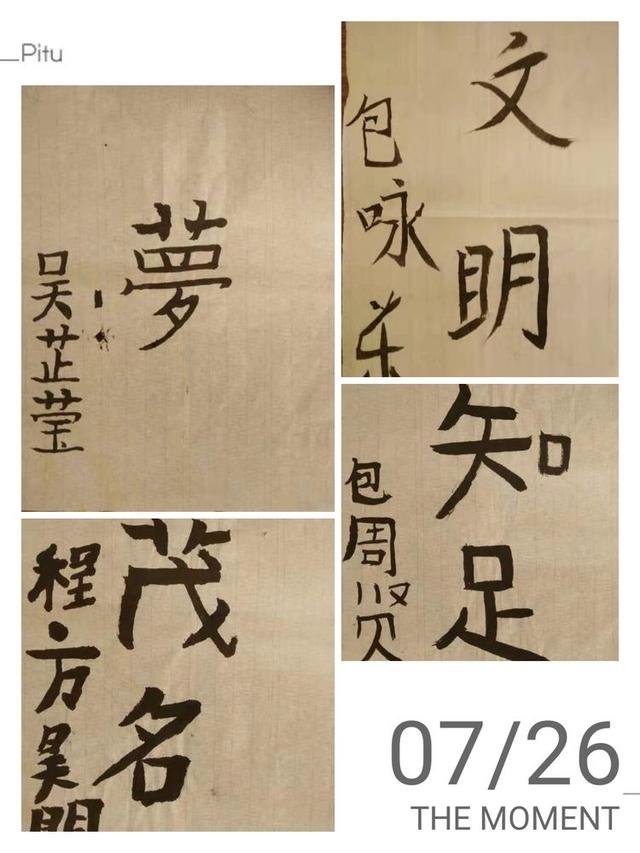 Pitu
夢
吴芷莹
文明
包咏
知足
包周贤
茂名
程方昊明
07/26
THE MOMENT